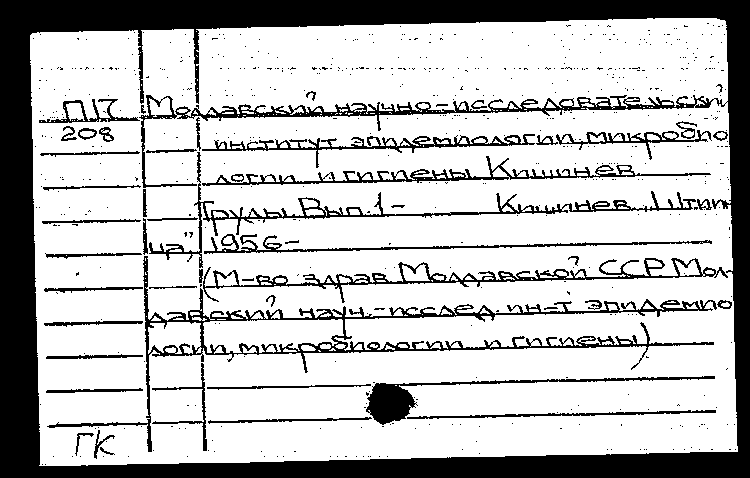 П17 Молдавский научно-исследовательский
208 институт эпидемиологии, микробио
логии и гигиены Кишинев
Труды. Вып. 1- Кишинев „Штиин
ца”, 1956-
(М-во здрав. Молдавской ССР. Мол
давский науч.-исслед. ин-т эпидемио
логии, микробиологии и гигиены)
ГК